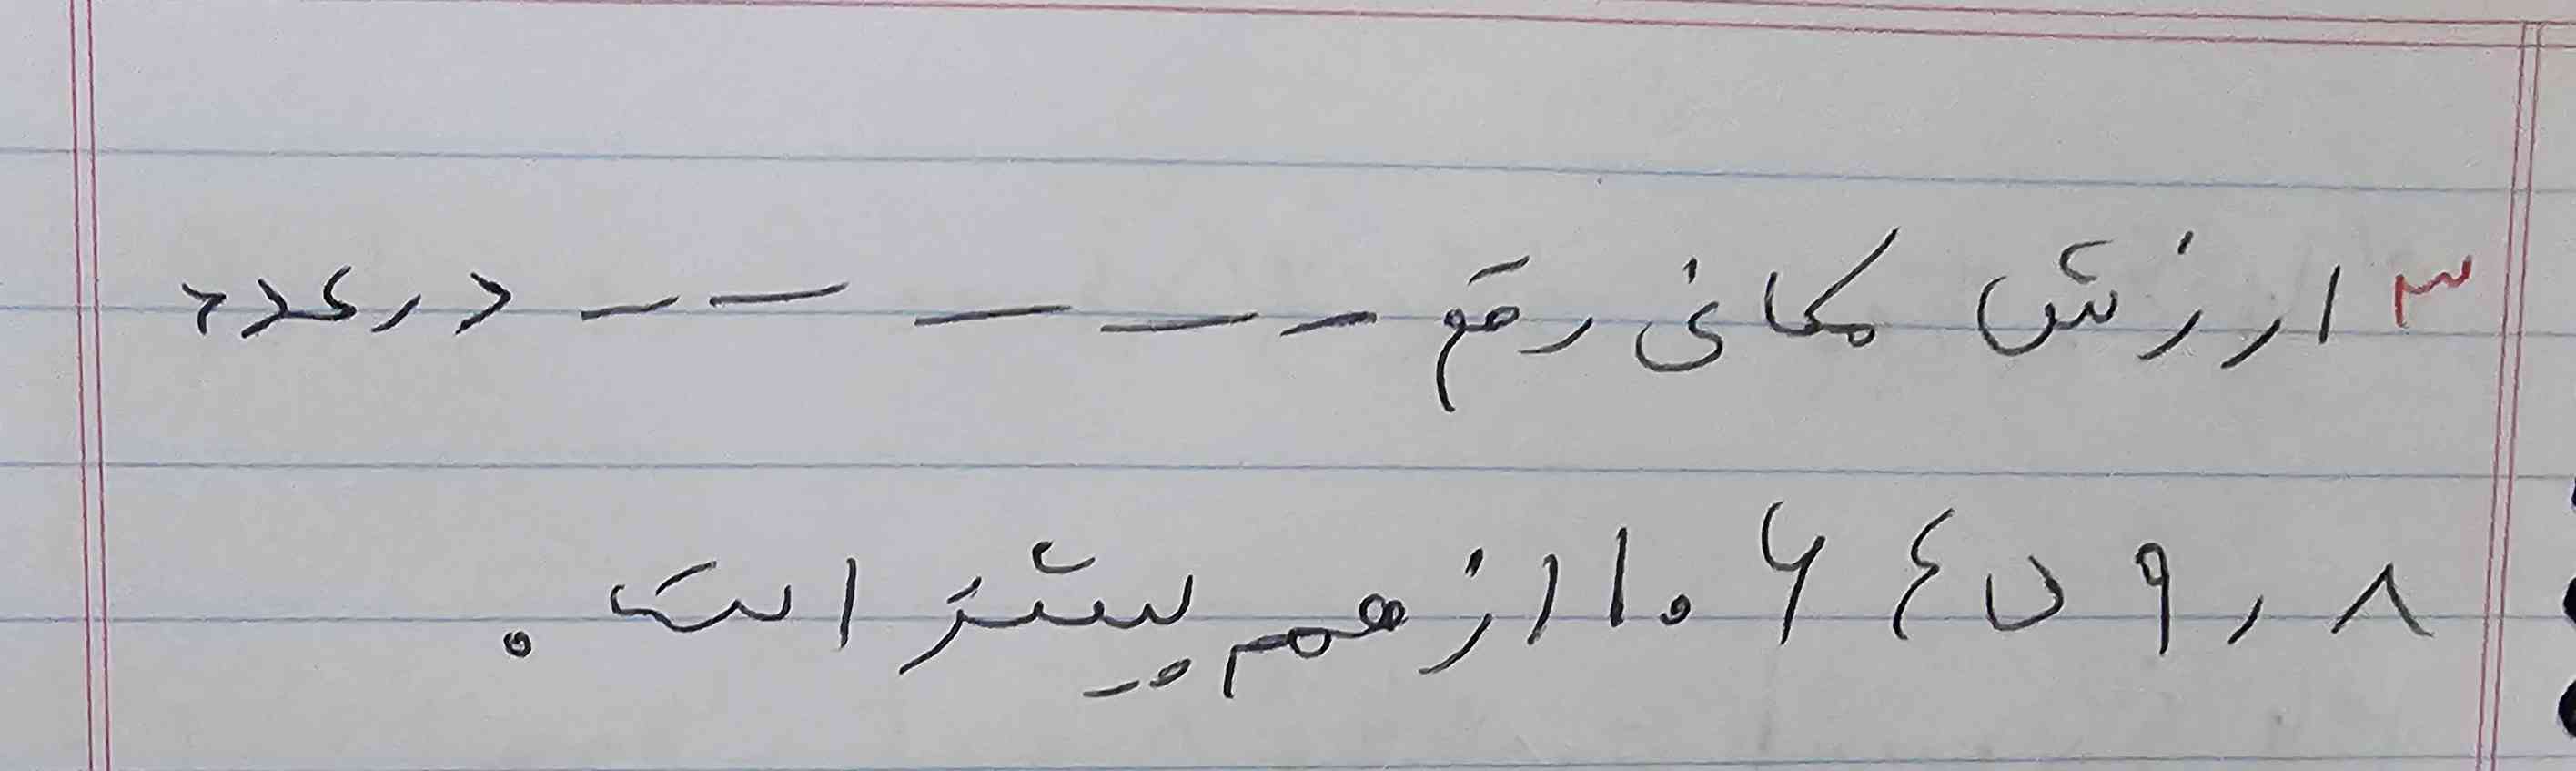 ۳ ارزش مکانی رقم _ _ _ _ _ در عدد
۱۰۶٤۵۹٫۸ از همه بیشتر است.